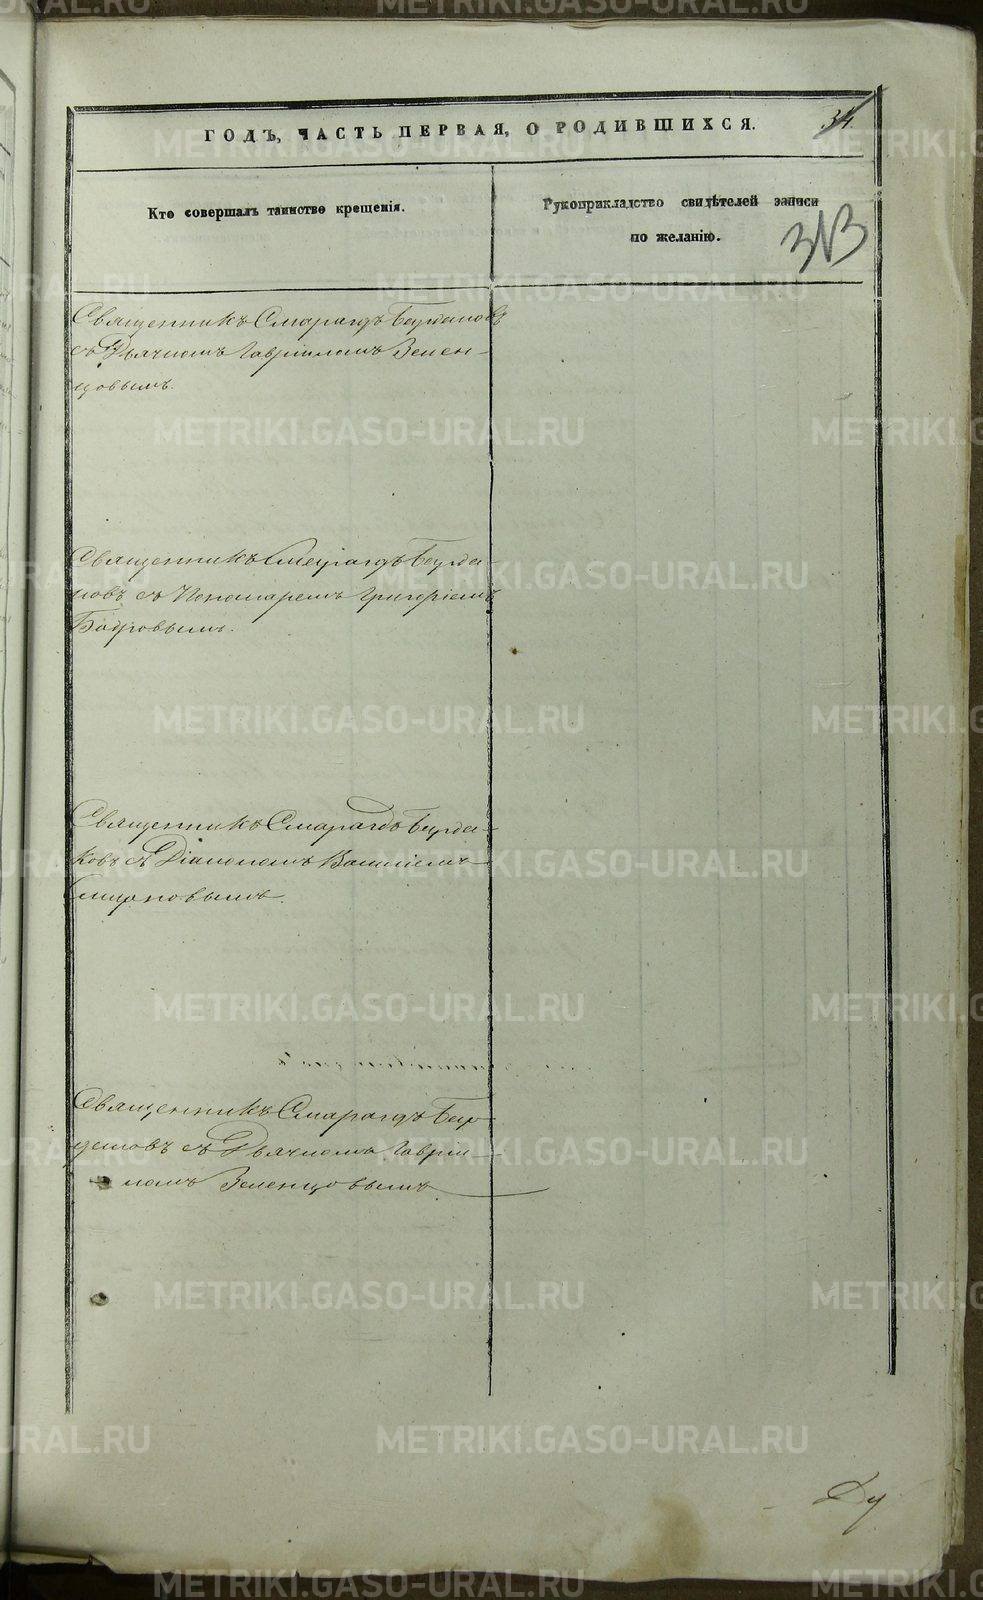 34.
ГОДЪ, ЧАСТЬ ПЕРВАЯ, О РОДИВШИХСЯ.
Кто совершалъ таинство крещенія.
Рукоприкладство свидѣтелей записи
по желанію.
313
Священникъ Смарагдъ Бурдаковъ
съ Дьячкомъ Гавріиломъ Зелен-
цовымъ.
Священникъ Смарагдъ Бурда-
ковъ съ Пономаремъ Григоріемъ
Бобровымъ.
Священникъ Смарагдъ Бурда-
ковъ съ Діакономъ Василіемъ
Смирновымъ.
Священникъ Смарагдъ Бур-
даковъ съ Дьячкомъ Гаврі-
ломъ Зеленцовымъ.
METRIKI.GASO-URAL.RU